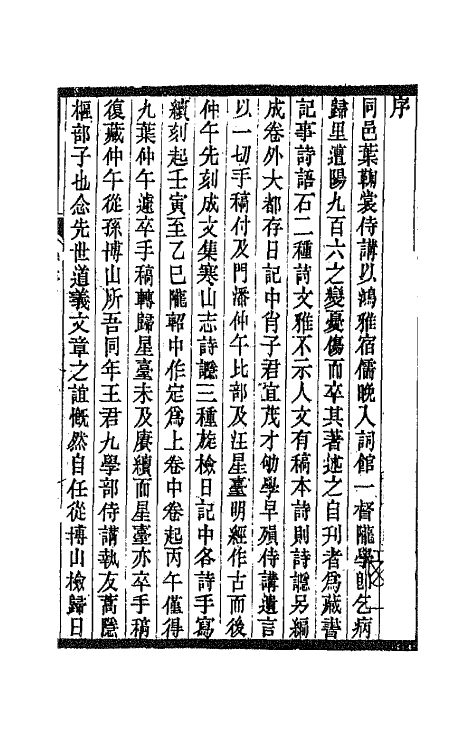 序
同邑葉鞠裳侍講以鴻雅宿儒晚入詞館一督隴學卽乞病
歸里遭陽九百六之變憂傷而卒其著述之自刊者爲藏書
記事詩語石二種詩文雅不示人文有稿本詩則詩讔另編
成卷外大都存日記中肖子君宜茂才劬學早殞侍講遺言
以一切手稿付及門潘仲午比部及汪星臺明經作古而後
仲午先刻成文集寒山志詩讔三種旋檢日記中各詩手寫
續刻起壬寅至乙巳隴軺中作定爲上卷中卷起丙午僅得
九葉仲午遽卒手稿轉歸星臺未及賡續而星臺亦卒手稿
復藏仲午從孫博山所吾同年王君九學部侍講執友蒿隱
樞部子也念先世道義文章之誼慨然自任從博山檢歸日